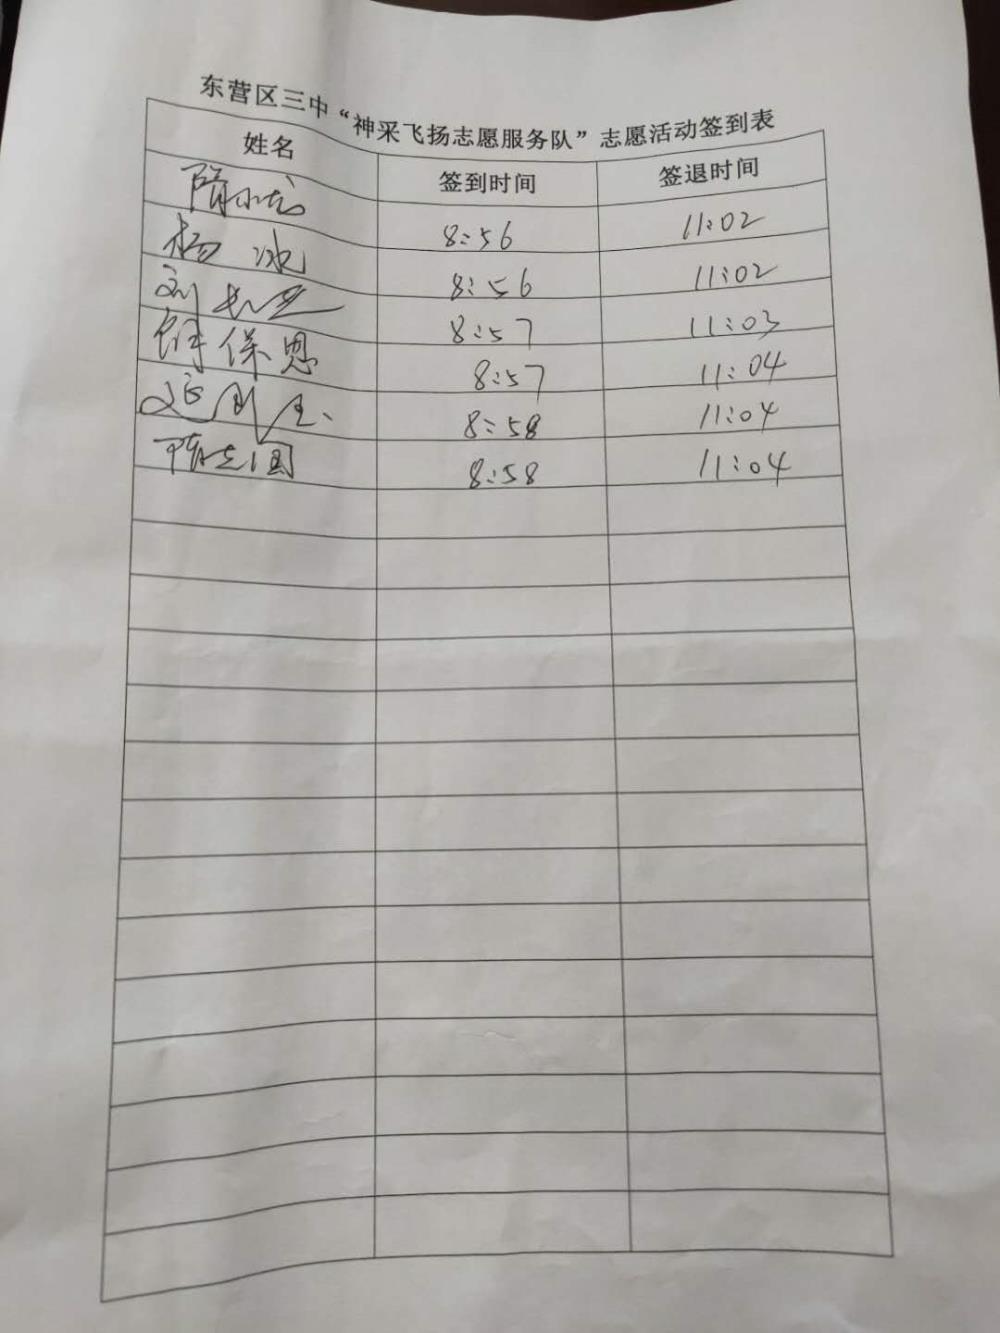 东营区三中“神采飞扬志愿服务队”志愿活动签到表
姓名 签到时间 签退时间
隋小龙 8:56 11:02
杨冰 8:56 11:02
刘 8:57 11:03
保恩 8:57 11:04
8:58 11:04
隋志国 8:58 11:04